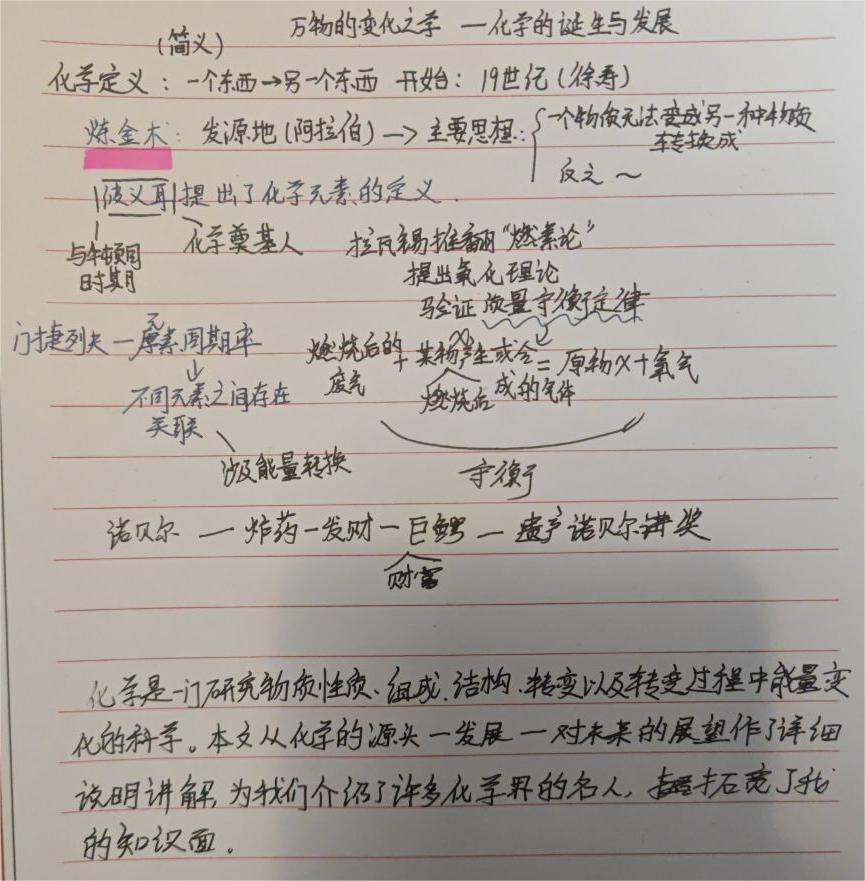 万物的变化之学 一化学的诞生与发展
(简义)
化学定义：一个东西→另一个东西 开始：19世纪(徐寿)
炼金术：发源地(阿拉伯)→主要思想：{一个物质无法变成另一种物质
转换成
反之～
波义耳提出了化学元素的定义.
与牛顿同
时期
化学奠基人
拉瓦锡推翻“燃素论”
提出氧化理论
验证 质量守衡定律
门捷列夫一元素周期率
↓
不同元素之间存在
关联
涉及能量转换
燃烧后的
废气
+ 某物产生或合
成的气体
(X)
燃烧后
= 原物X+氧气
守衡
诺贝尔 — 炸药—发财—巨鳄 — 遗产诺贝尔奖
财富
化学是一门研究物质性质、组成、结构、转变以及转变过程中能量变
化的科学。本文从化学的源头一发展一对未来的展望作了详细
说明讲解,为我们介绍了许多化学界的名人，拓宽了我
的知识面。